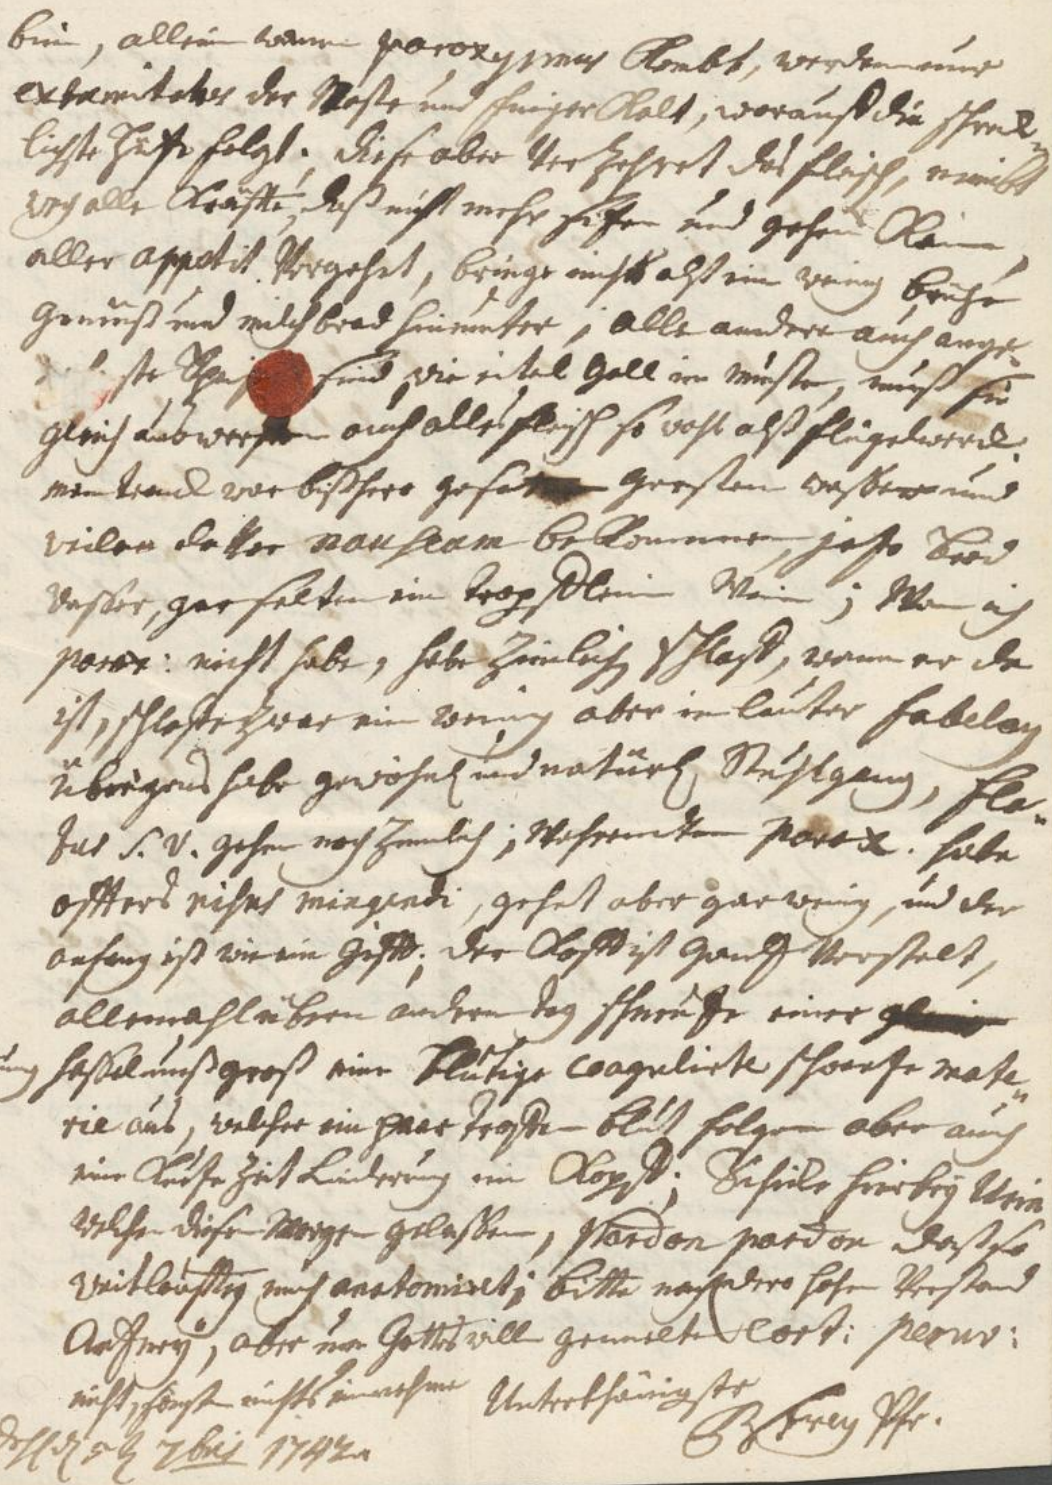 bin, allein wann paroxysmus Kombt, werden mir
extremitates der Nase und finger Kalt, worauf die schreck=
lichste Hitze folgt; diese aber Verzehret das fleisch, nimbt
weg alle Kräffte, daß nicht mehr sitzen und gehen Kan,
aller appetit Vergehet, bringe nichts alß ein wenig brühe
gemüß und milchbrod hinunter; alle andere auch ange=
ste Speis sind wie eitel Gall im munde, muß sie
gleich auswerffen auch alles fleisch so wohl alß flügelwerck.
mein tranck war bißhero gersten wasser und
weilen darüber nauseam bekommen, jetzo Brod
wasser, gar selten ein tröpfflein Wein; Wan ich
parox: nicht habe, habe Zimlich schlaff, wann er da
ist, schlaffe zwar ein wenig aber in lauter fabeley
übrigens habe gewöhnl und natürl Stuhlgang, fla=
tus S. V. gehen noch Zimlich; Wehrendem parox. habe
offters nisus mingendi, gehet aber gar wenig, und der
anfang ist wie ein gifft; der Kopff ist Gantz Verstelt,
allemahl übern andern tag schneutze einer
haselnuß groß eine blutige coagulirte scharfe mate=
rie aus, welcher ein paar tropffen blut folgen aber auch
eine Kurtze Zeit Linderung im Kopff; Schicke hierbey Urin
welchen diesen Morgen gelassen, Pardon pardon daß so
weitläuffig mich anatomiret; bitte nach dero hohen Verstand
Artzney, aber um Gottes will gemelte Cort: peruv:
nicht, sonst nichts einnehme Unterthänigster
Frey Pfr.
7bris 1742